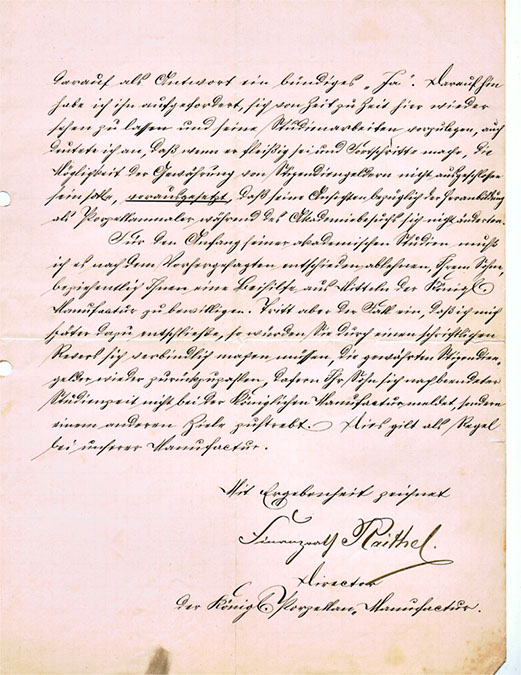 darauf als Antwort ein bündiges „Ja". Daraufhin
habe ich ihn aufgefordert, sich von Zeit zu Zeit hier wieder
sehen zu lassen und seine Studienarbeiten vorzulegen, auch
deutete ich an, daß wenn er fleißig sei und Fortschritte mache, die
Möglichkeit der Gewährung von Stipendiengeldern nicht ausgeschlossen
sein solle, vorausgesetzt, daß seine Ansichten bezüglich der Heranbildung
als Porzellanmaler während des Akademiebesuchs sich nicht änderten.
Für den Anfang seiner akademischen Studien muß
ich es nach dem Vorhergesagten entschieden ablehnen, Ihrem Sohn,
beziehentlich Ihnen eine Beihilfe aus Mitteln der Königl.
Manufactur zu bewilligen. Tritt aber der Fall ein, daß ich mich
später dazu entschließe, so würden Sie durch einen schriftlichen
Revers sich verbindlich machen müssen, die gewährten Stipendien-
gelder wieder zurückzuzahlen, dafern Ihr Sohn sich nach beendeter
Studienzeit nicht bei der Königlichen Manufactur meldet, sondern
einem anderen Ziele zustrebt. Dies gilt als Regel
bei unserer Manufactur.
Mit Ergebenheit zeichnet
Finanzrath Raithel.
Director
der Königl. Porzellan-Manufactur.